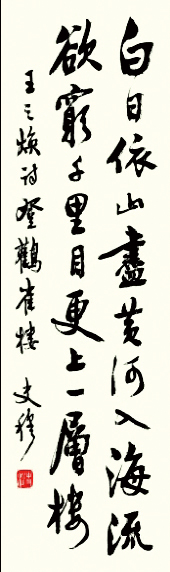 白日依山盡黃河入海流
欲窮千里目更上一層樓
王之煥詩登鸛雀樓 史穆